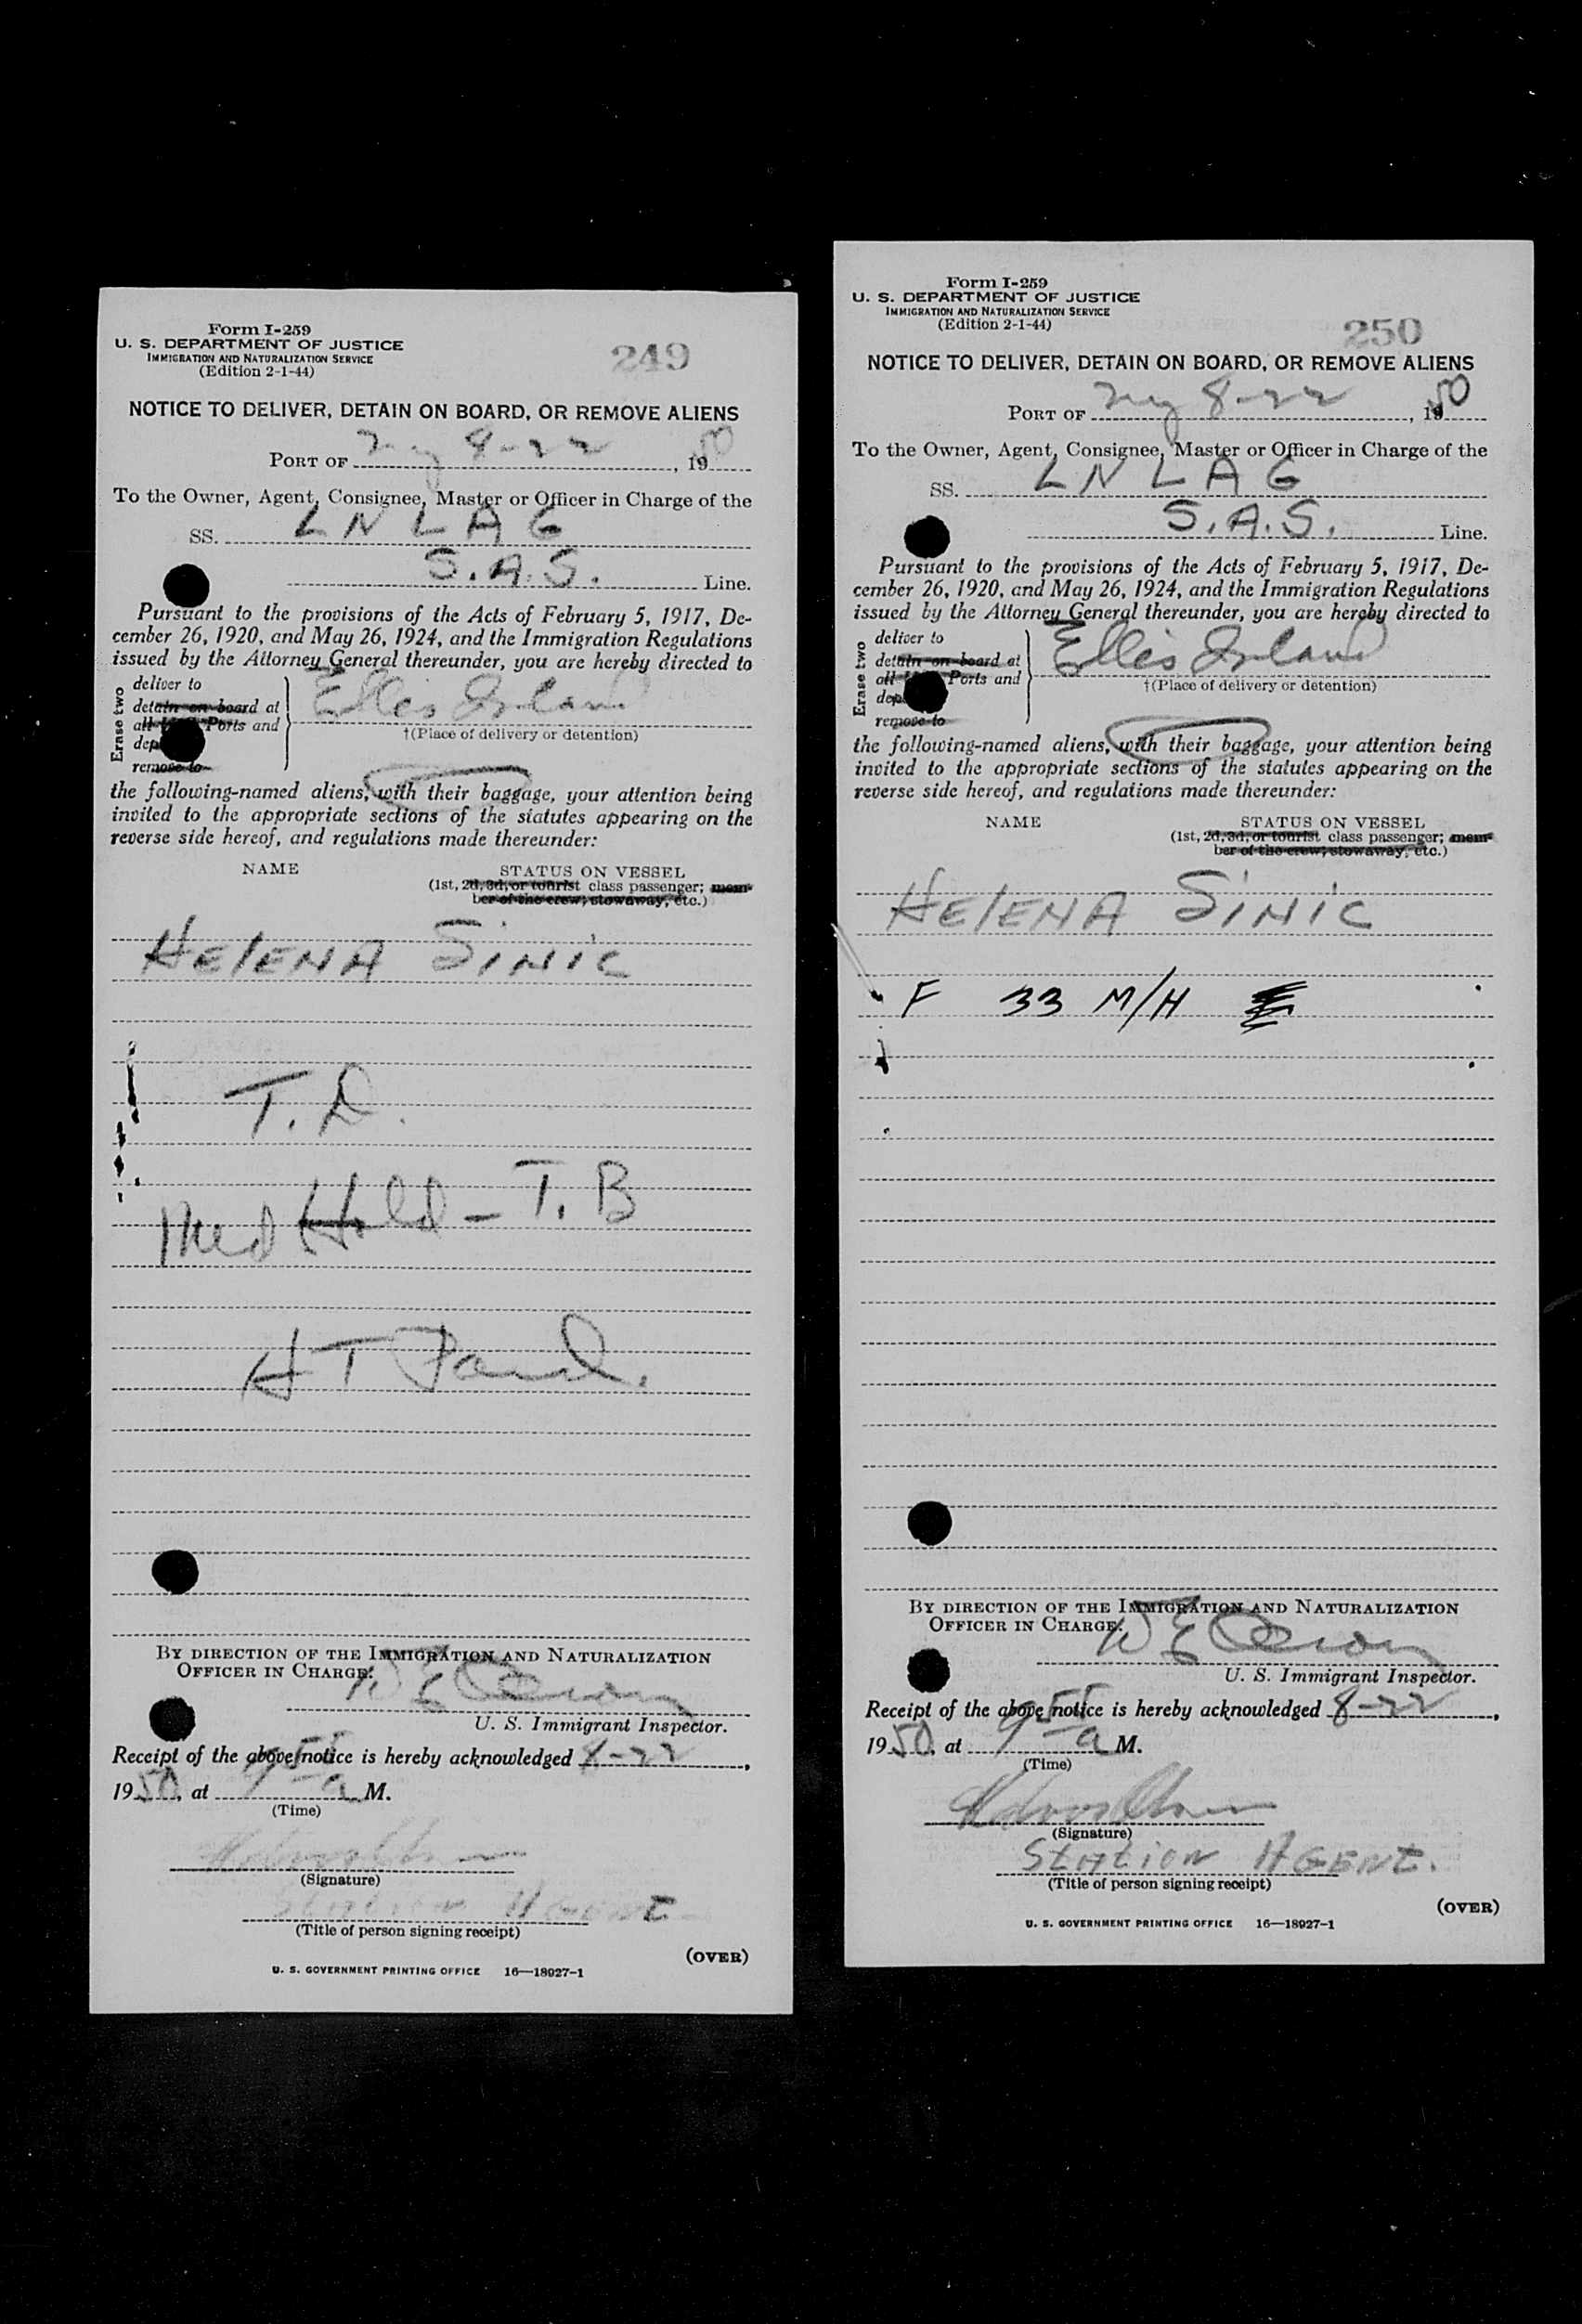 Form I-259
U. S. DEPARTMENT OF JUSTICE
IMMIGRATION AND NATURALIZATION SERVICE
(Edition 2-1-44)
249
NOTICE TO DELIVER, DETAIN ON BOARD, OR REMOVE ALIENS
PORT OF NY 8-22, 1950
To the Owner, Agent, Consignee, Master or Officer in Charge of the
SS. LN LAG
S.A.S. Line.
Pursuant to the provisions of the Acts of February 5, 1917, De-
cember 26, 1920, and May 26, 1924, and the Immigration Regulations
issued by the Attorney General thereunder, you are hereby directed to
Erase two
deliver to
detain on board at
all Ports and
remove to
Ellis Island
†(Place of delivery or detention)
the following-named aliens, with their baggage, your attention being
invited to the appropriate sections of the statutes appearing on the
reverse side hereof, and regulations made thereunder:
NAME STATUS ON VESSEL
(1st, 2d, 3d, or tourist class passenger; mem-
ber of the crew; stowaway, etc.)
HELENA SINIC
T. D.
Med Hold - T. B
H T
BY DIRECTION OF THE IMMIGRATION AND NATURALIZATION
OFFICER IN CHARGE:
U. S. Immigrant Inspector.
Receipt of the above notice is hereby acknowledged 8-22,
1950, at 955 a M.
(Time)
(Signature)
Station AGENt
(Title of person signing receipt)
(OVER)
U. S. GOVERNMENT PRINTING OFFICE 16—18927-1
Form I-259
U. S. DEPARTMENT OF JUSTICE
IMMIGRATION AND NATURALIZATION SERVICE
(Edition 2-1-44)
250
NOTICE TO DELIVER, DETAIN ON BOARD, OR REMOVE ALIENS
PORT OF NY 8-22, 1950
To the Owner, Agent, Consignee, Master or Officer in Charge of the
SS. LN LAG
S.A.S. Line.
Pursuant to the provisions of the Acts of February 5, 1917, De-
cember 26, 1920, and May 26, 1924, and the Immigration Regulations
issued by the Attorney General thereunder, you are hereby directed to
Erase two
deliver to
detain on board at
all Ports and
remove to
Ellis Island
†(Place of delivery or detention)
the following-named aliens, with their baggage, your attention being
invited to the appropriate sections of the statutes appearing on the
reverse side hereof, and regulations made thereunder:
NAME STATUS ON VESSEL
(1st, 2d, 3d, or tourist class passenger; mem-
ber of the crew; stowaway, etc.)
HELENA SINIC
F 33 M/H
BY DIRECTION OF THE IMMIGRATION AND NATURALIZATION
OFFICER IN CHARGE:
U. S. Immigrant Inspector.
Receipt of the above notice is hereby acknowledged 8-22,
1950, at 955 a M.
(Time)
(Signature)
Station AGENt.
(Title of person signing receipt)
(OVER)
U. S. GOVERNMENT PRINTING OFFICE 16—18927-1